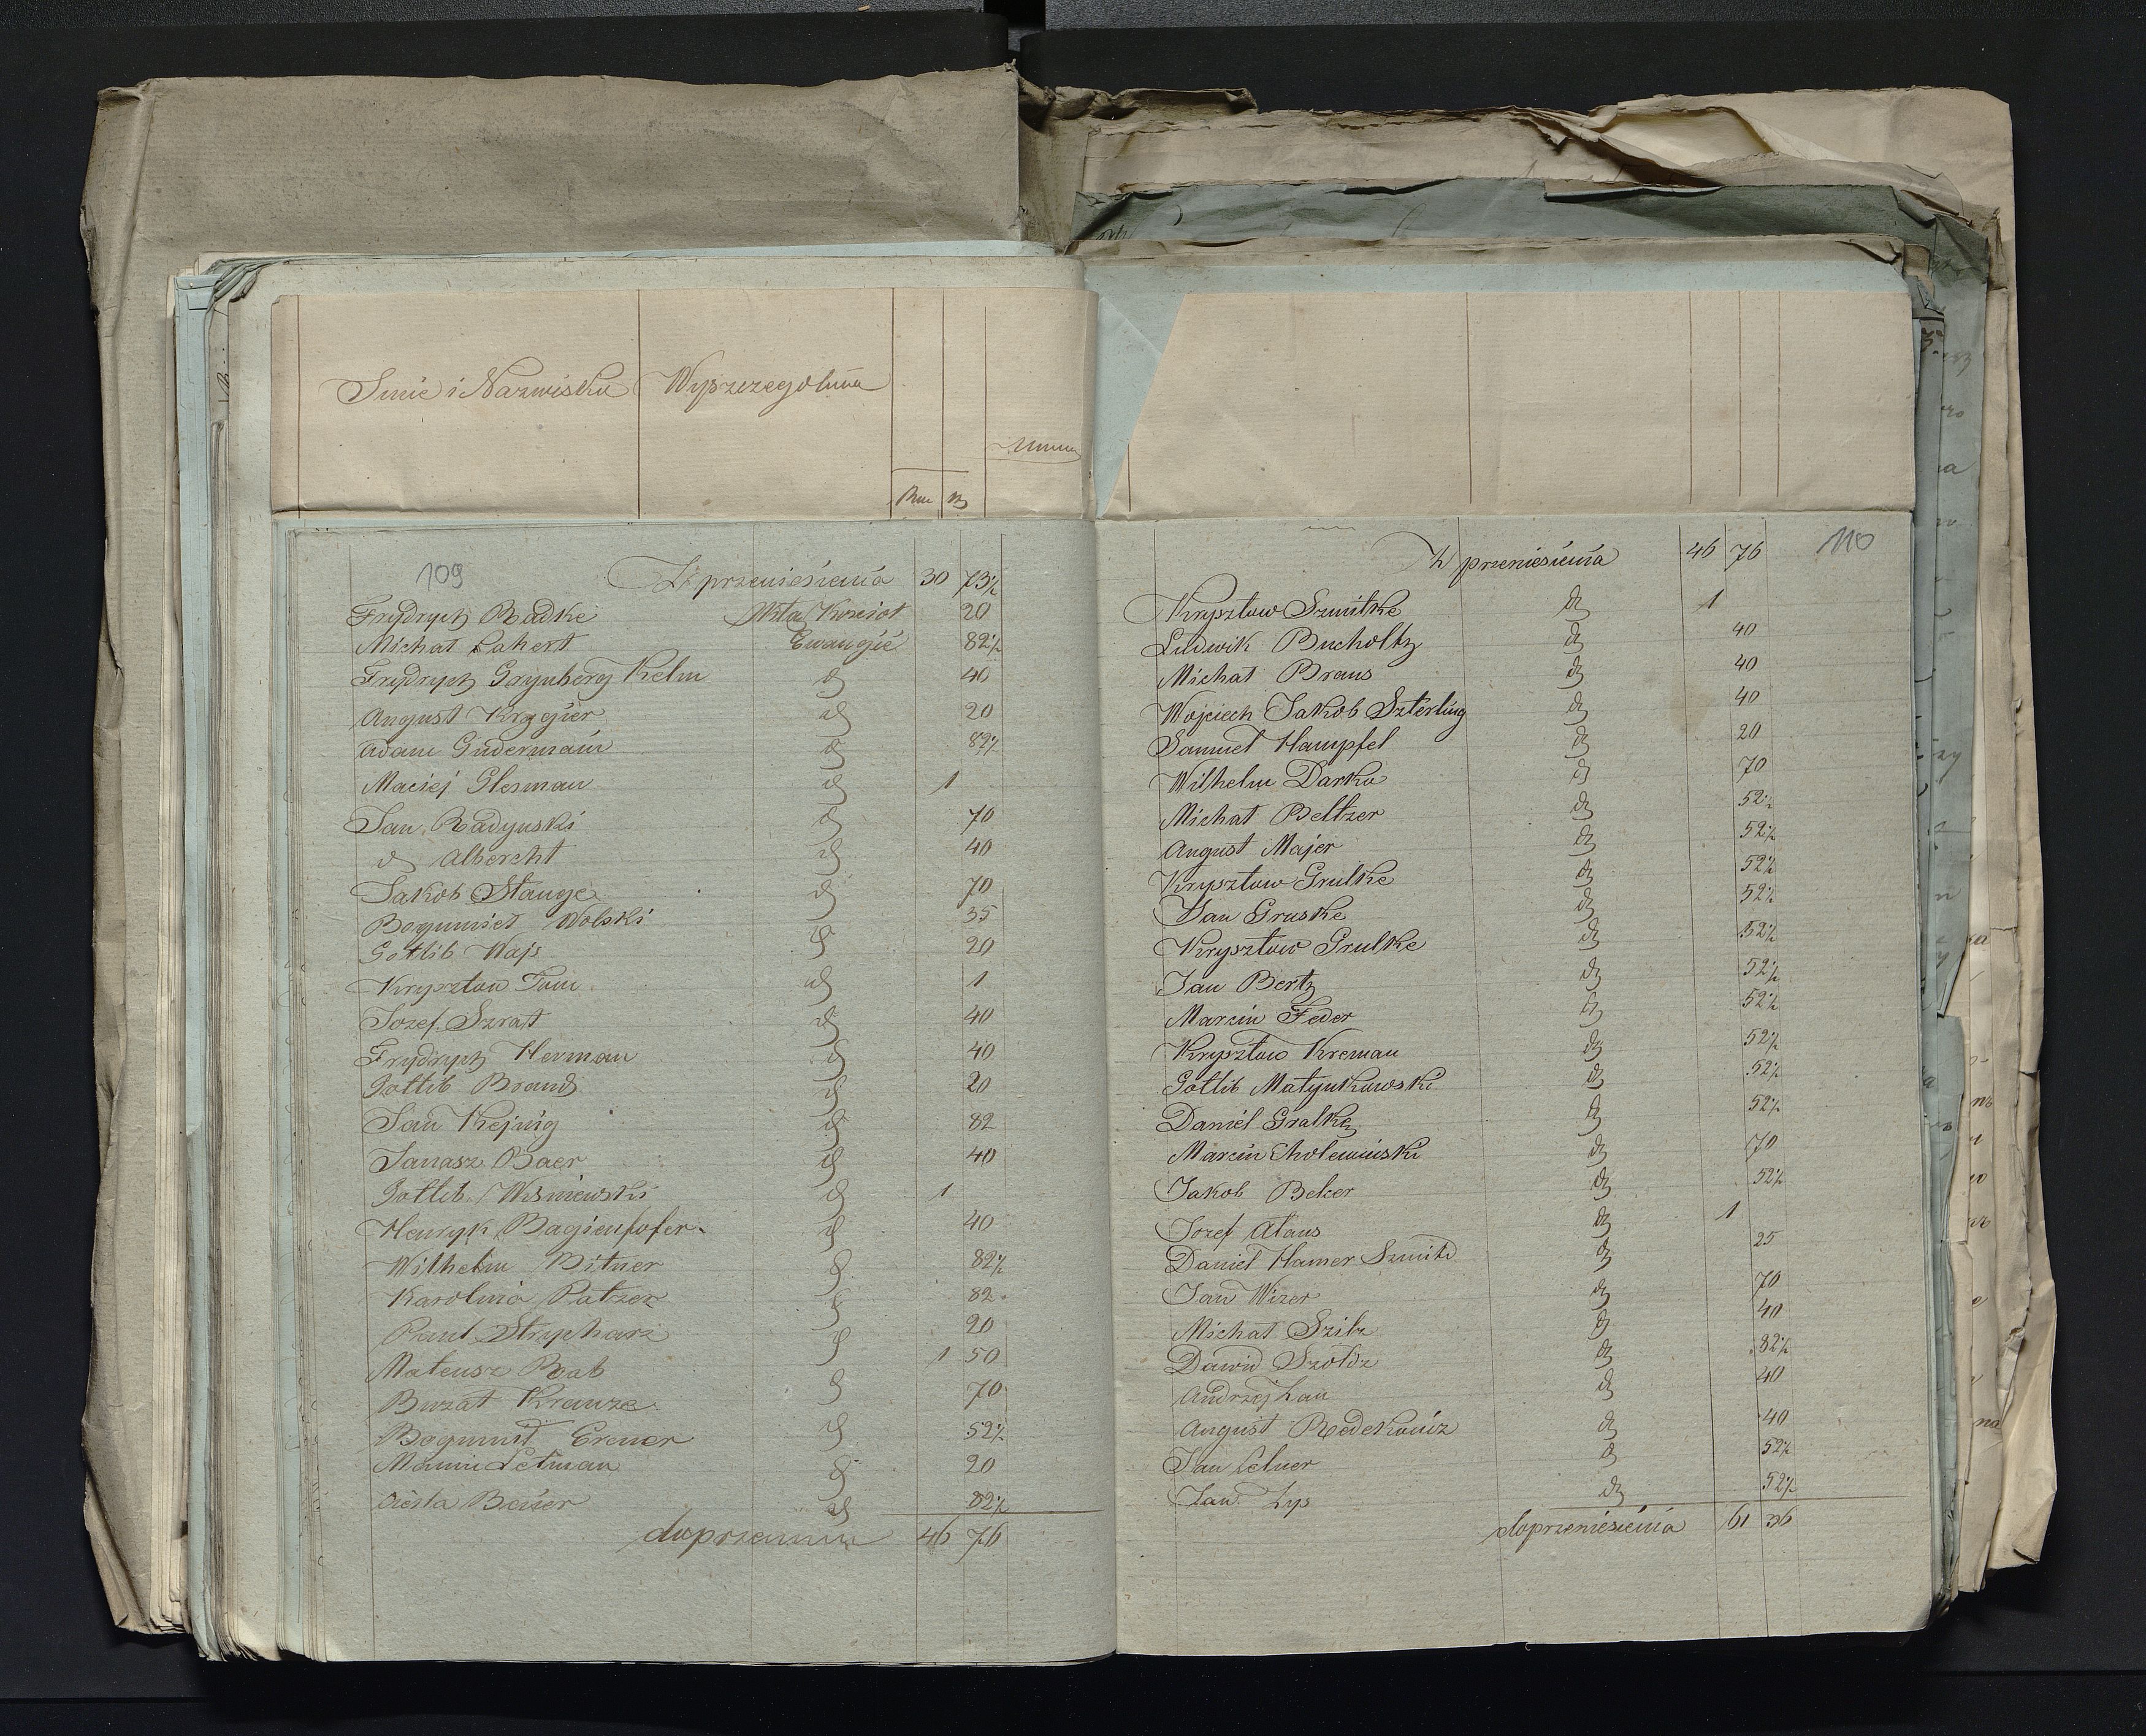 Imie i Nazwisko Wyszczegolnia
Summa
Rnr
109
Z przeniesienia 30 73½
Frydrych Radke Na Kosciot 20
Michał Lahert Ewangie 82½
Frydrych Grynberg Kelm d 40
August Krygier d 20
Adam Guderman d 82½
Maciej Glesman d 1
Jan Radynski d 70
d Albercht d 40
Jakob Stange d 70
Bogumiet Wolski d 35
Gotlib Wajs d 20
Krysztow Tom d 1
Jozef Szrast d 40
Frydrych Herman d 40
Gotlib Brand d 20
Jan Kejnig d 82
Janasz Baer d 40
Gotlib Wisniewski d 1
Henryk Bagienhofer d 40
Wilhelm Bitner d 82½
Karolina Patzer d 82
Paul Stryharz d 20
Mateusz Rab d 1 50
Buzat Krauze d 70
Bogumił Erener d 52½
Letman d 20
Bauer d 82½
doprzeniesie 46 76
110
Z przeniesienia 46 76
Krysztow Szmitke d 1
Ludwik Bucholtz d 40
Michał Braus d 40
Wojciech Jakob Szterling d 40
Samuel Hampfel d 20
Wilhelm Darko d 70
Michał Beltzer d 52½
August Majer d 52½
Krysztow Grulke d 52½
Jan Gruske d 52½
Krysztow Grulke d 52½
Jan Bertz d 52½
Marcin Feder d 52½
Krysztow Kreman d 52½
Gotlib Matynkowski d 52½
Daniel Gralke d 52½
Marcin Cholewinski d 70
Jakob Beker d 52½
Jozef Ataus d 1
Daniel Hamer Szmitd d 25
Jan Wizer d 70
Michał Szilz d 40
Dawid Szoldz d 82½
Andrzej Lau d 40
August Redekowicz d 40
Jan Celner d 52½
Jan Lys d 52½
doprzeniesienia 61 36